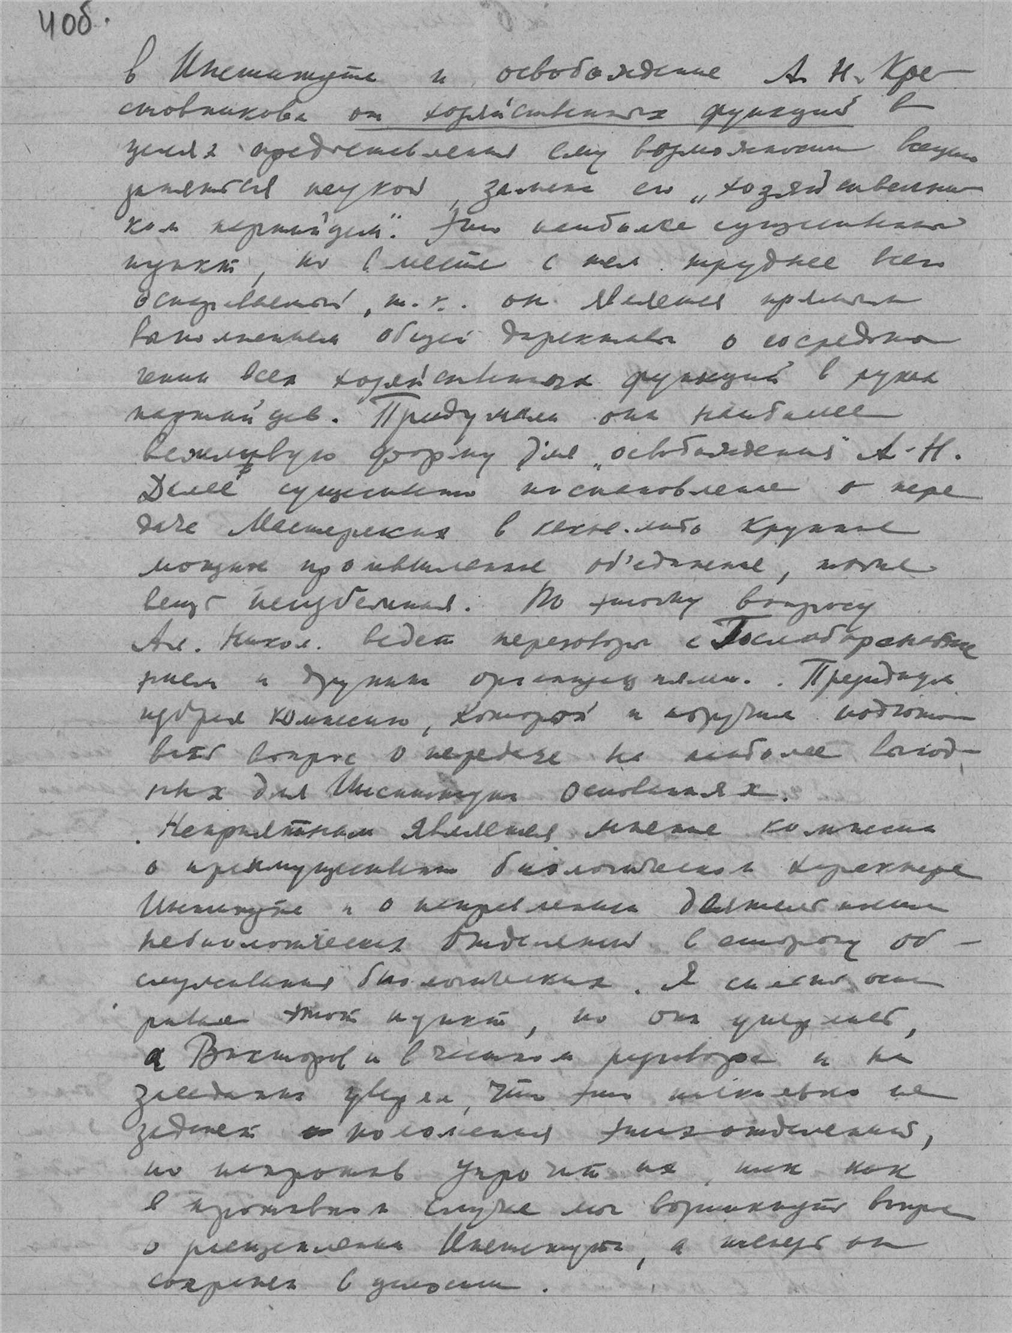 4 об.
в Институте и освобождение А. Н. Кре-
стовникова от хозяйственных функций в
целях предоставления ему возможности всецело
заняться наукой, замена его „хозяйственни-
ком партийцем“. Это наиболее существенный
пункт, но вместе с тем труднее всего
оспариваемый, т.к. он является прямым
выполнением общей директивы о сосредото-
чении всех хозяйственных функций в руках
партийцев. Придумали они наиболее
вежливую форму для „освобождения“ А. Н.
Далее существенно постановление о пере-
даче Мастерских в какое-либо крупное
мощное промышленное об'единение, тоже
вещь неизбежная. По этому вопросу
Ал. Никол. ведет переговоры с Гослаборснабже-
нием и другими организациями. Президиум
избрал комиссию, которой и поручил подгото-
вить вопрос о передаче на наиболее выгод-
ных для Института основаниях.
Неприятным является мнение комиссии
о преимущественно биологическом характере
Института и о направлении деятельности
небиологических отделений в сторону об-
служивания биологических. Я сильно оспа-
ривал этот пункт, но он уцелел,
а Викторов и в частном разговоре и на
заседании уверял, что это нисколько не
заденет положения этих отделений,
но напротив упрочит их, так как
в противном случае мог возникнуть вопрос
о расщеплении Института, а теперь он
сохранен в целости.